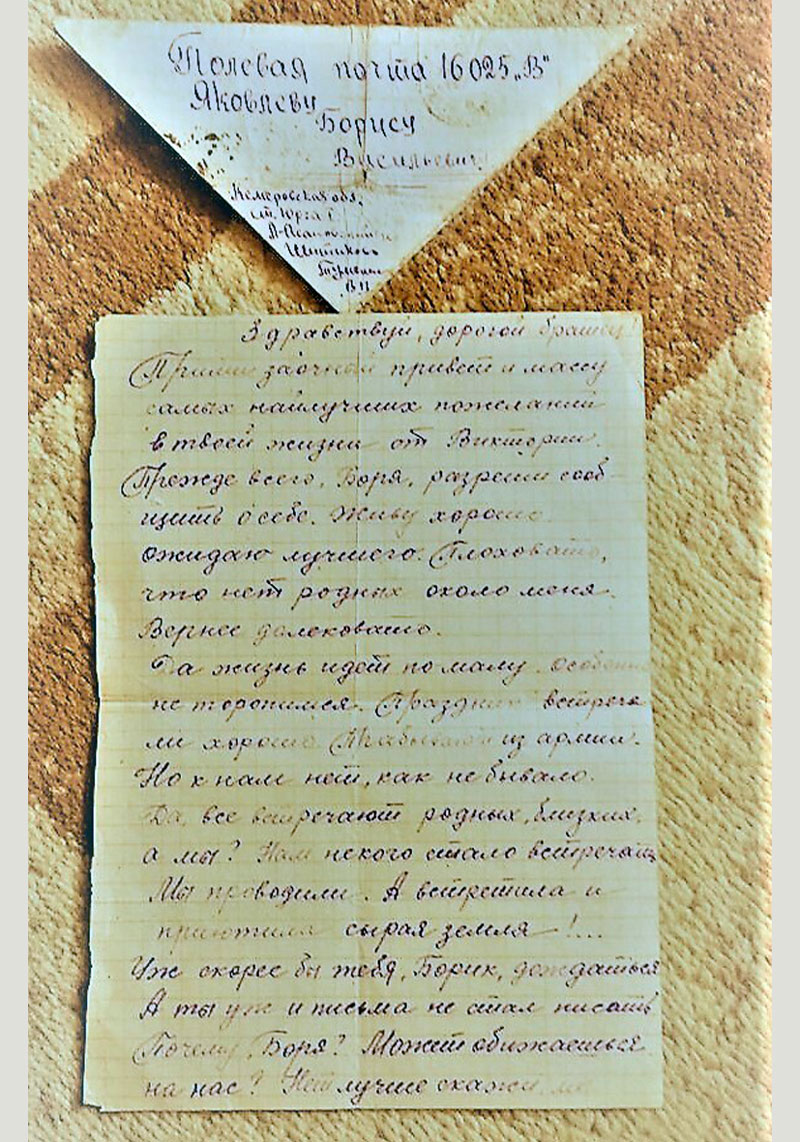 Полевая почта 16025 „В"
Яковлеву
Борису
Васильевичу
Кемеровская обл.
ст. Юрга I
Здравствуй, дорогой братец!
Прими заочный привет и массу
самых наилучших пожеланий
в твоей жизни от Виктории.
Прежде всего, Боря, разреши сооб
щить о себе. Живу хорошо
ожидаю лучшего. Плоховато,
что нет родных около меня.
Вернее далековато.
Да жизнь идет по малу. особенно
не торопимся. Праздник встреча
ли хорошо. Прибывают из армии.
Но к нам нет, как не бывало.
Да, все встречают родных, близких,
а мы? Нам некого стало встречать
Мы проводили. А встретила и
приютила сырая земля!...
Уж скорее бы тебя, Борик, дождаться
А ты уж и письма не стал писать
Почему, Боря? Может обижаешься
на нас? Нет лучше скажи,